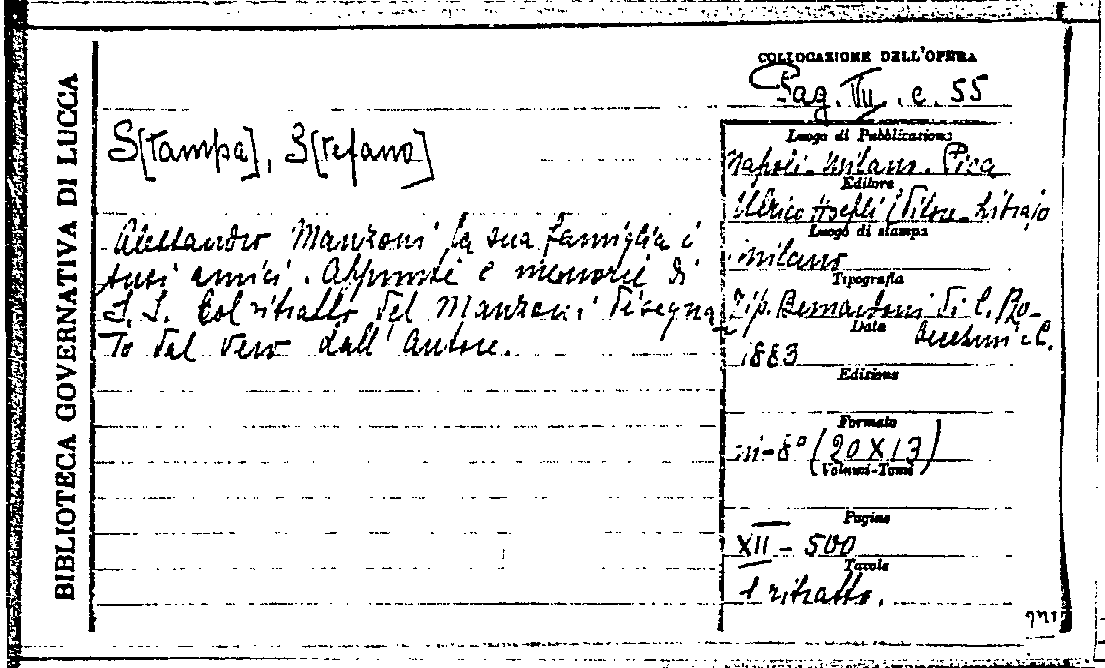 BIBLIOTECA GOVERNATIVA DI LUCCA
COLLOCAZIONE DELL'OPERA
Pag. VII. e. 55
S[tampa], S[tefano]
Alessandro Manzoni la sua famiglia i
suoi amici. Appunti e memorie di
S. S. Col ritratto del Manzoni disegna-
to dal vero dall'autore.
Luogo di Pubblicazione
Napoli-Milano-Pisa
Editore
Ulrico Hoepli Editore-Libraio
Luogo di stampa
Milano
Tipografia
Tip. Bernardoni di C. Re-
beschini e C.
Data
1883
Edizione
Formato
in-8° (20X13)
Volumi-Tomi
Pagine
XII - 500
Tavole
1 ritratto.